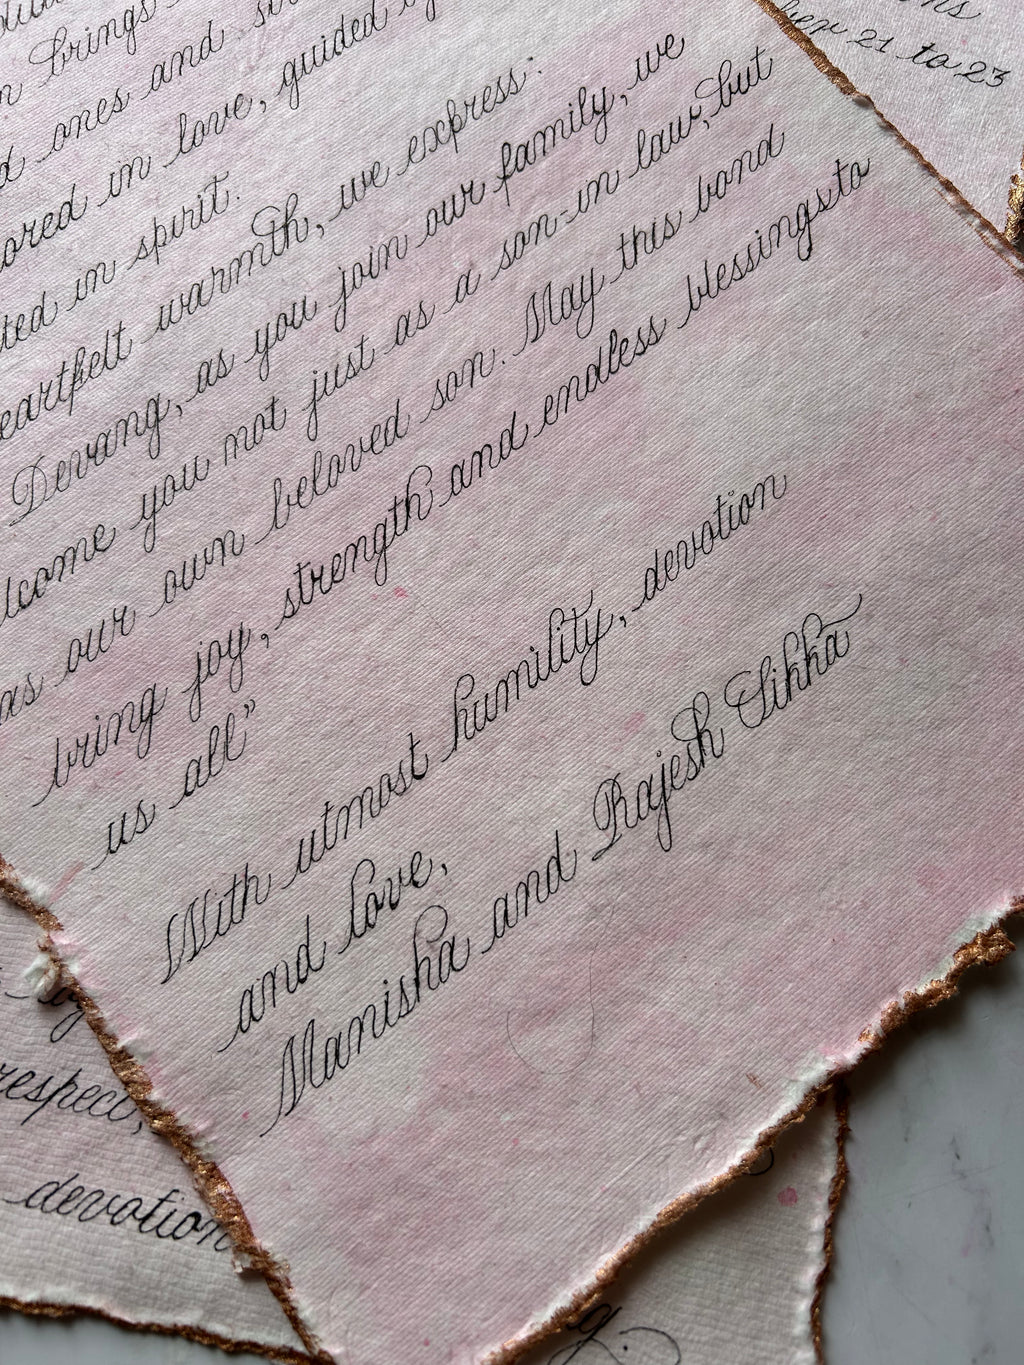 brings
ones and
in love, guided
in spirit.
warmth, we express:
Devang, as you join our family, we
you not just as a son-in law, but
as our own beloved son. May this bond
bring joy, strength and endless blessings to
us all”
With utmost humility, devotion
and love,
Manisha and Rajesh Sikka
21 to 23
respect,
devotion